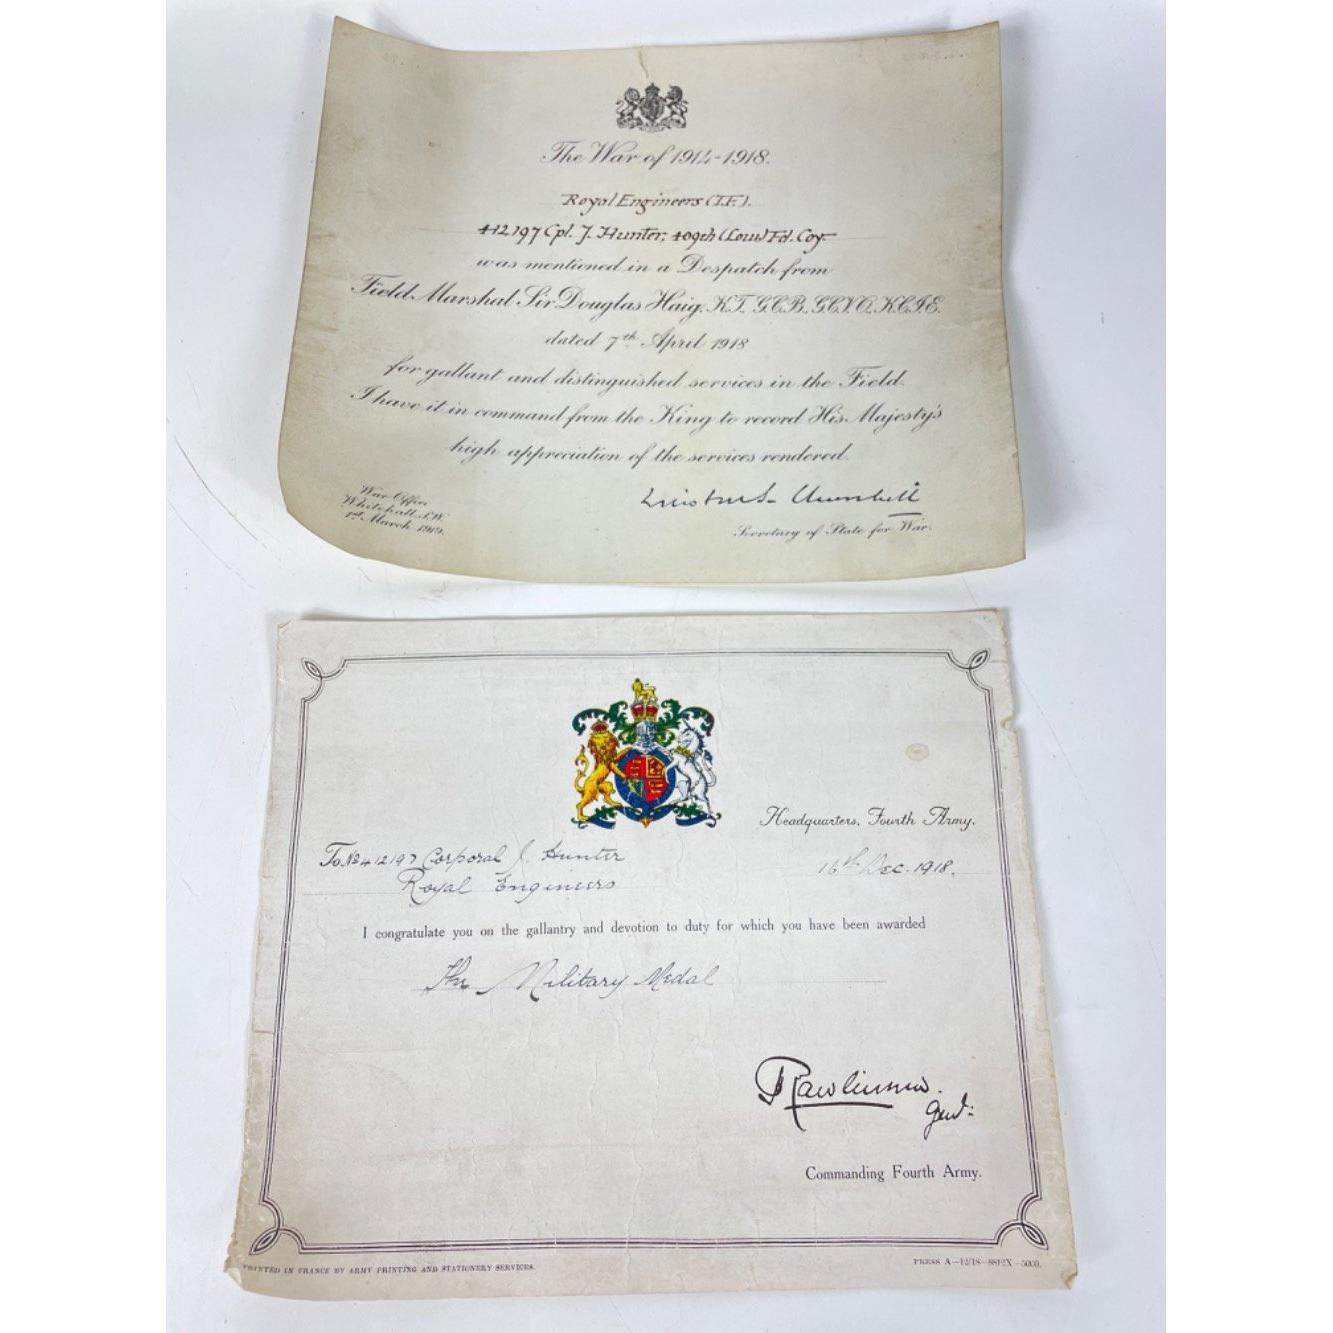 The War of 1914-1918.
Royal Engineers (T.F.).
412197 Cpl. J. Hunter, 409th (Low) Fd. Coy.
was mentioned in a Despatch from
Field Marshal Sir Douglas Haig, K.T., G.C.B., G.C.V.O., K.C.I.E.
dated 7th April 1918
for gallant and distinguished services in the Field.
I have it in command from the King to record His Majesty's
high appreciation of the services rendered.
War Office
Whitehall, S.W.
1st March 1919.
Winston S. Churchill
Secretary of State for War.
Headquarters, Fourth Army.
To No 412197 Corporal J. Hunter
Royal Engineers
16th Dec. 1918.
I congratulate you on the gallantry and devotion to duty for which you have been awarded
The Military Medal
Rawlinson.
Genl:
Commanding Fourth Army.
PRINTED IN FRANCE BY ARMY PRINTING AND STATIONERY SERVICES.
PRESS A—12/18—8812X—5000.